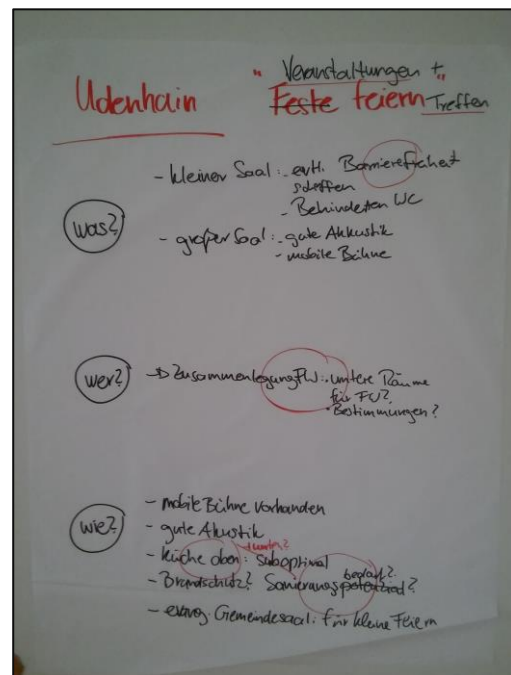 Udenhain
" Veranstaltungen + "
Feste feiern Treffen
was?
- kleiner Saal: - evtl. Barrierefreiheit
schaffen
- Behinderten WC
- großer Saal: - gute Akkustik
- mobile Bühne
wer?
→ Zusammenlegung FW: · untere Räume
für FW?
· Bestimmungen?
wie?
- mobile Bühne vorhanden
- gute Akustik
+ unten?
- Küche oben: suboptimal
bedarf?
- Brandschutz? Sanierungspotenzial?
- evang. Gemeindesaal: für kleine Feiern